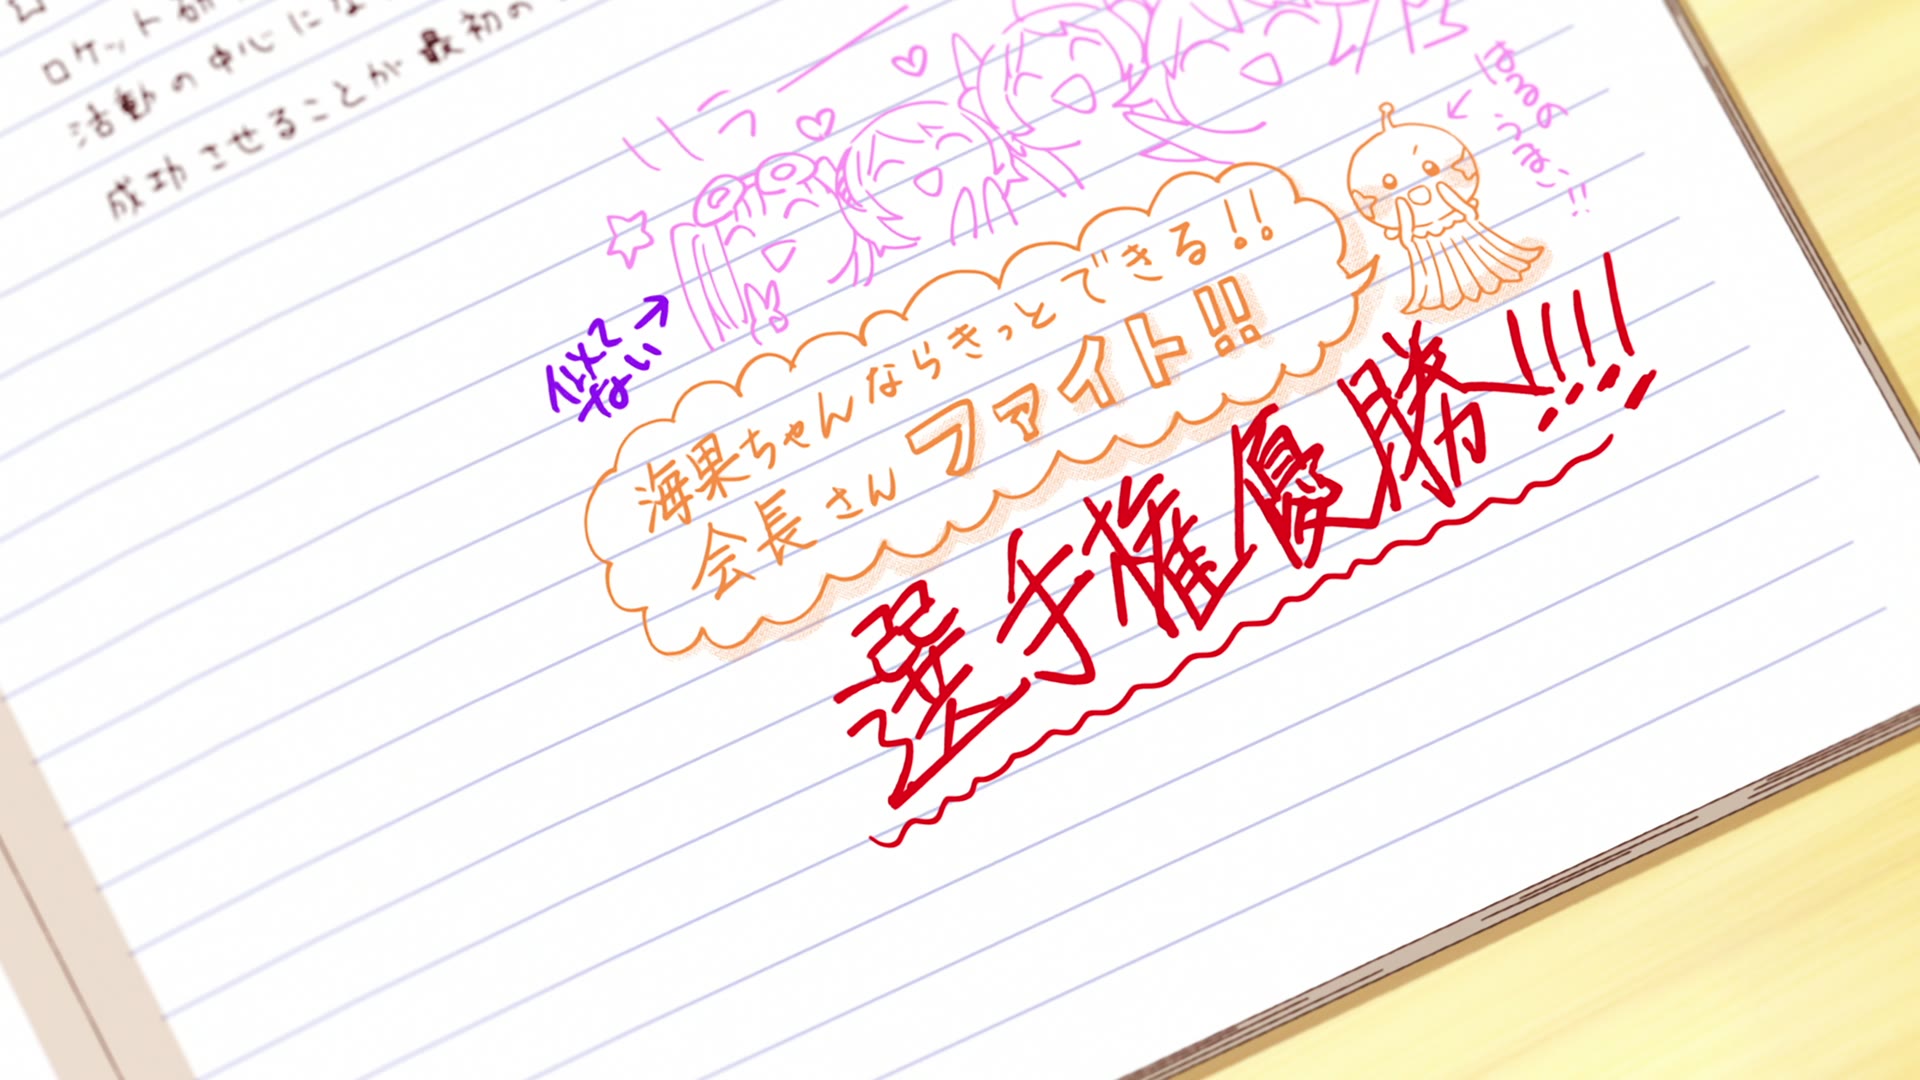 ロケット
活動の中心にな
成功させることが最初の
はるの
うまい!!
似て
ない
海果ちゃんならきっとできる!!
会長さんファイト!!
選手権優勝!!!!